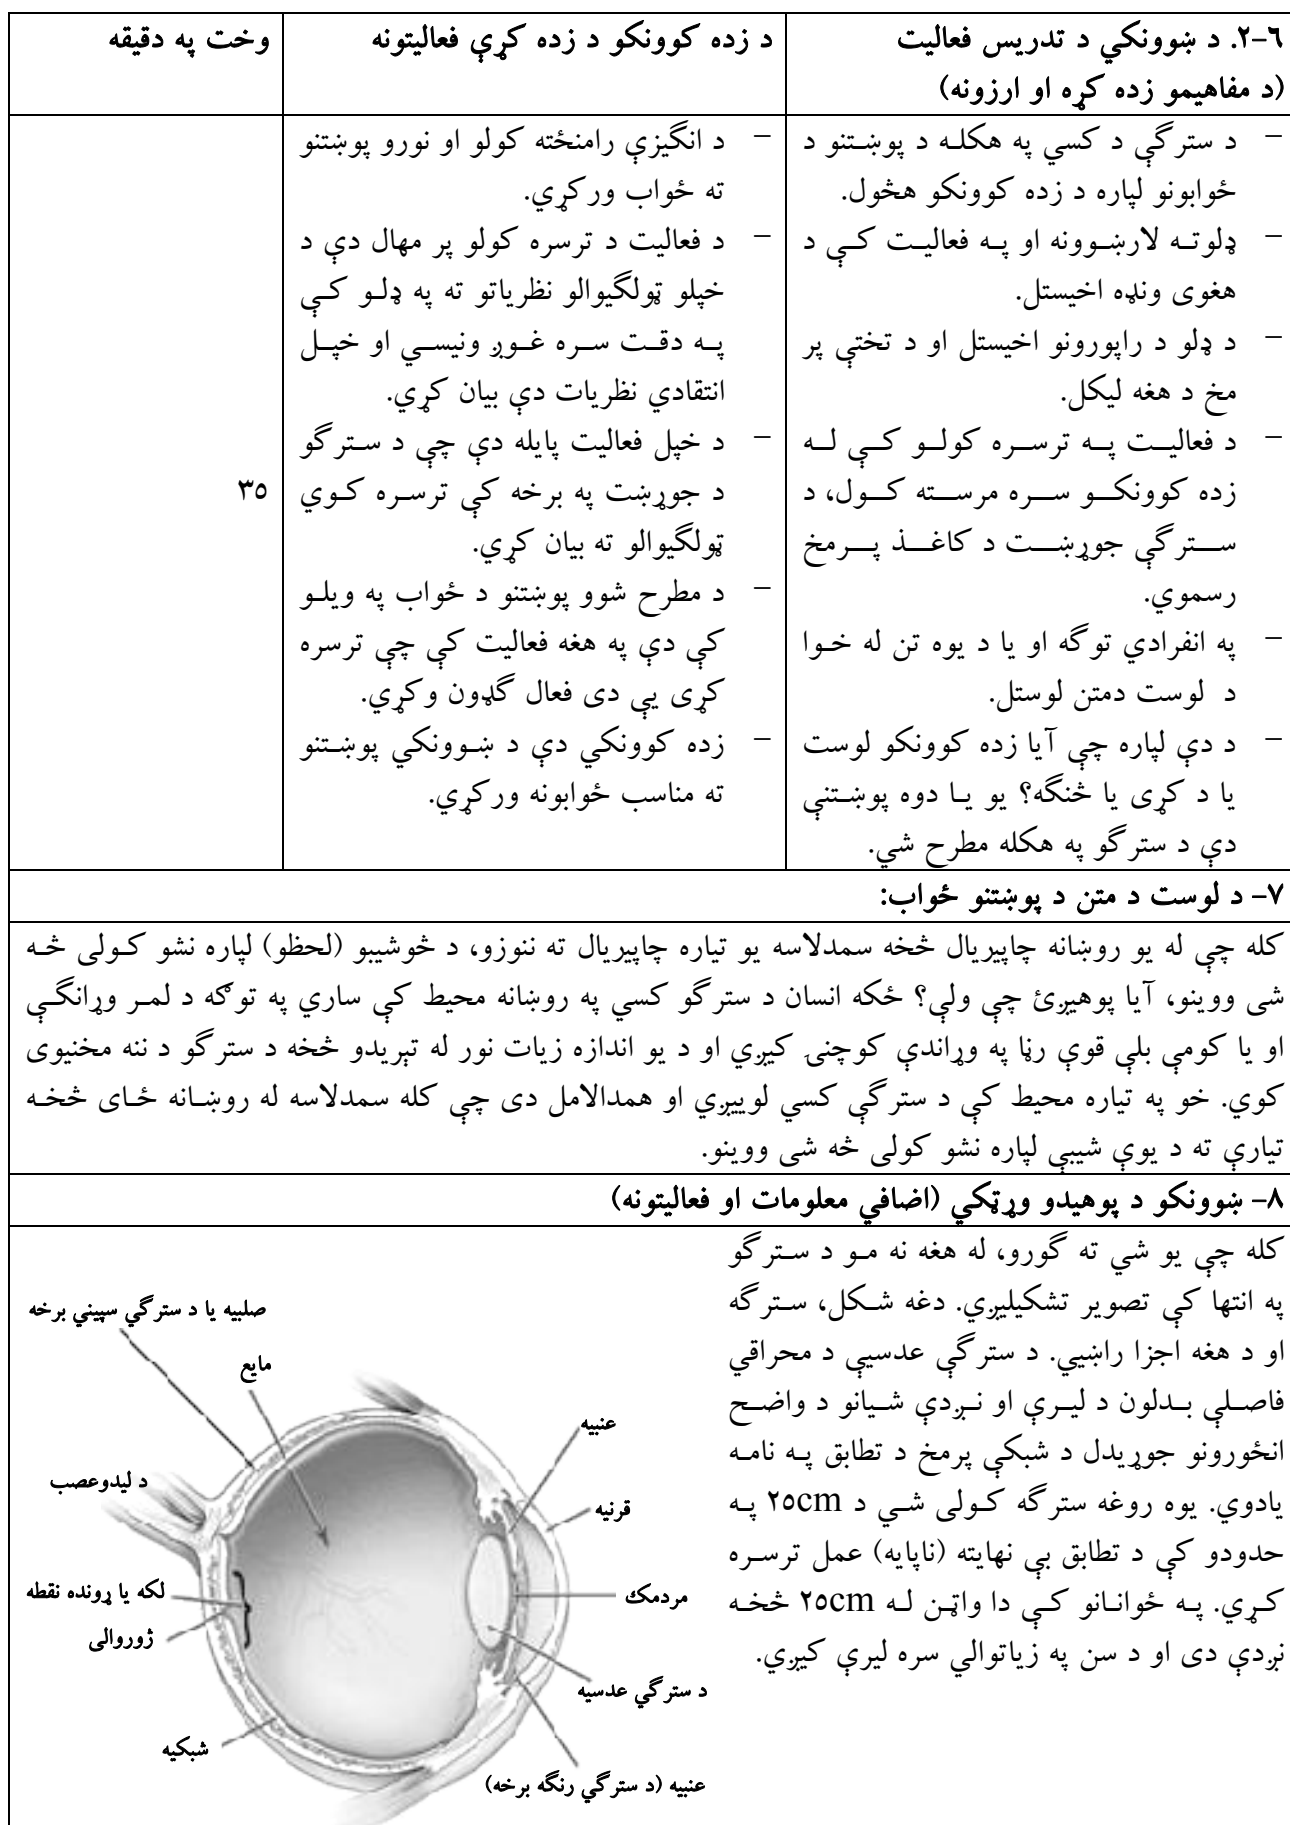 ۶-۲. د ښوونکي د تدریس فعالیت
(د مفاهیمو زده کړه او ارزونه)
د زده کوونکو د زده کړې فعالیتونه
وخت په دقیقه
– د سترگې د کسي په هکله د پوښتنو د
ځوابونو لپاره د زده کوونکو هڅول.
– ډلوته لارښوونه او په فعالیت کې د
هغوی ونډه اخیستل.
– د ډلو د راپورونو اخیستل او د تختې پر
مخ د هغه لیکل.
– د فعالیت په ترسره کولو کې له
زده کوونکو سره مرسته کول، د
سترگې جوړښت د کاغذ پرمخ
رسموي.
– په انفرادي توگه او یا د یوه تن له خوا
د لوست دمتن لوستل.
– د دې لپاره چې آیا زده کوونکو لوست
یا د کړی یا څنگه؟ یو یا دوه پوښتنې
دې د سترگو په هکله مطرح شي.
– د انگیزې رامنځته کولو او نورو پوښتنو
ته ځواب ورکړي.
– د فعالیت د ترسره کولو پر مهال دې د
خپلو ټولگیوالو نظریاتو ته په ډلو کې
په دقت سره غوږ ونیسي او خپل
انتقادي نظریات دې بیان کړي.
– د خپل فعالیت پایله دې چې د سترگو
د جوړښت په برخه کې ترسره کوي
ټولگیوالو ته بیان کړي.
– د مطرح شوو پوښتنو د ځواب په ویلو
کې دې په هغه فعالیت کې چې ترسره
کړی یې دی فعال گډون وکړي.
– زده کوونکي دې د ښوونکي پوښتنو
ته مناسب ځوابونه ورکړي.
۳۵
۷- د لوست د متن د پوښتنو ځواب:
کله چې له یو روښانه چاپیریال څخه سمدلاسه یو تیاره چاپیریال ته ننوزو، د څوشیبو (لحظو) لپاره نشو کولی څه
شی ووینو، آیا پوهیږئ چې ولې؟ ځکه انسان د سترگو کسي په روښانه محیط کې ساري په توګه د لمر وړانگې
او یا کومې بلې قوې رڼا په وړاندې کوچنۍ کیږي او د یو اندازه زیات نور له تېریدو څخه د سترگو د ننه مخنیوی
کوي. خو په تیاره محیط کې د سترگې کسي لوییږي او همدالامل دی چې کله سمدلاسه له روښانه ځای څخه
تیارې ته د یوې شیبې لپاره نشو کولی څه شی ووینو.
۸- ښوونکو د پوهیدو وړټکي (اضافي معلومات او فعالیتونه)
کله چې یو شي ته گورو، له هغه نه مو د سترگو
په انتها کې تصویر تشکیلیږي. دغه شکل، سترگه
او د هغه اجزا راښیي. د سترگې عدسیې د محراقي
فاصلې بدلون د لیرې او نږدې شیانو د واضح
انځورونو جوړیدل د شبکې پرمخ د تطابق په نامه
یادوي. یوه روغه سترگه کولی شي د ۲۵cm په
حدودو کې د تطابق بې نهایته (ناپایه) عمل ترسره
کړي. په ځوانانو کې دا واټن له ۲۵cm څخه
نږدې دی او د سن په زیاتوالي سره لیرې کیږي.
صلبیه یا د سترگي سپیني برخه
مایع
عنبیه
د لیدوعصب
قرنیه
لکه یا ړونده نقطه
مردمك
ژوروالی
د سترگي عدسیه
شبکیه
عنبیه (د سترگي رنگه برخه)